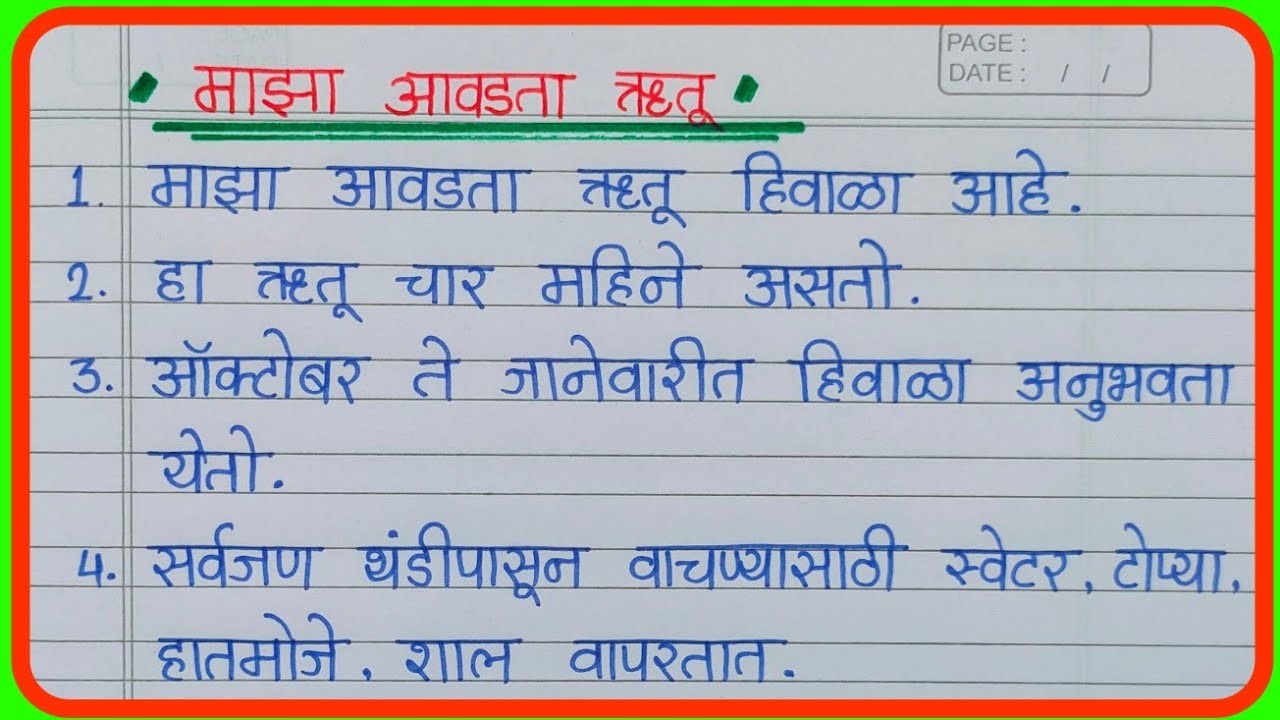 PAGE :
DATE : / /
माझा आवडता ऋतू
1. माझा आवडता ऋतू हिवाळा आहे.
2. हा ऋतू चार महिने असतो.
3. ऑक्टोबर ते जानेवारीत हिवाळा अनुभवता
येतो.
4. सर्वजण थंडीपासून वाचण्यासाठी स्वेटर, टोप्या,
हातमोजे, शाल वापरतात.